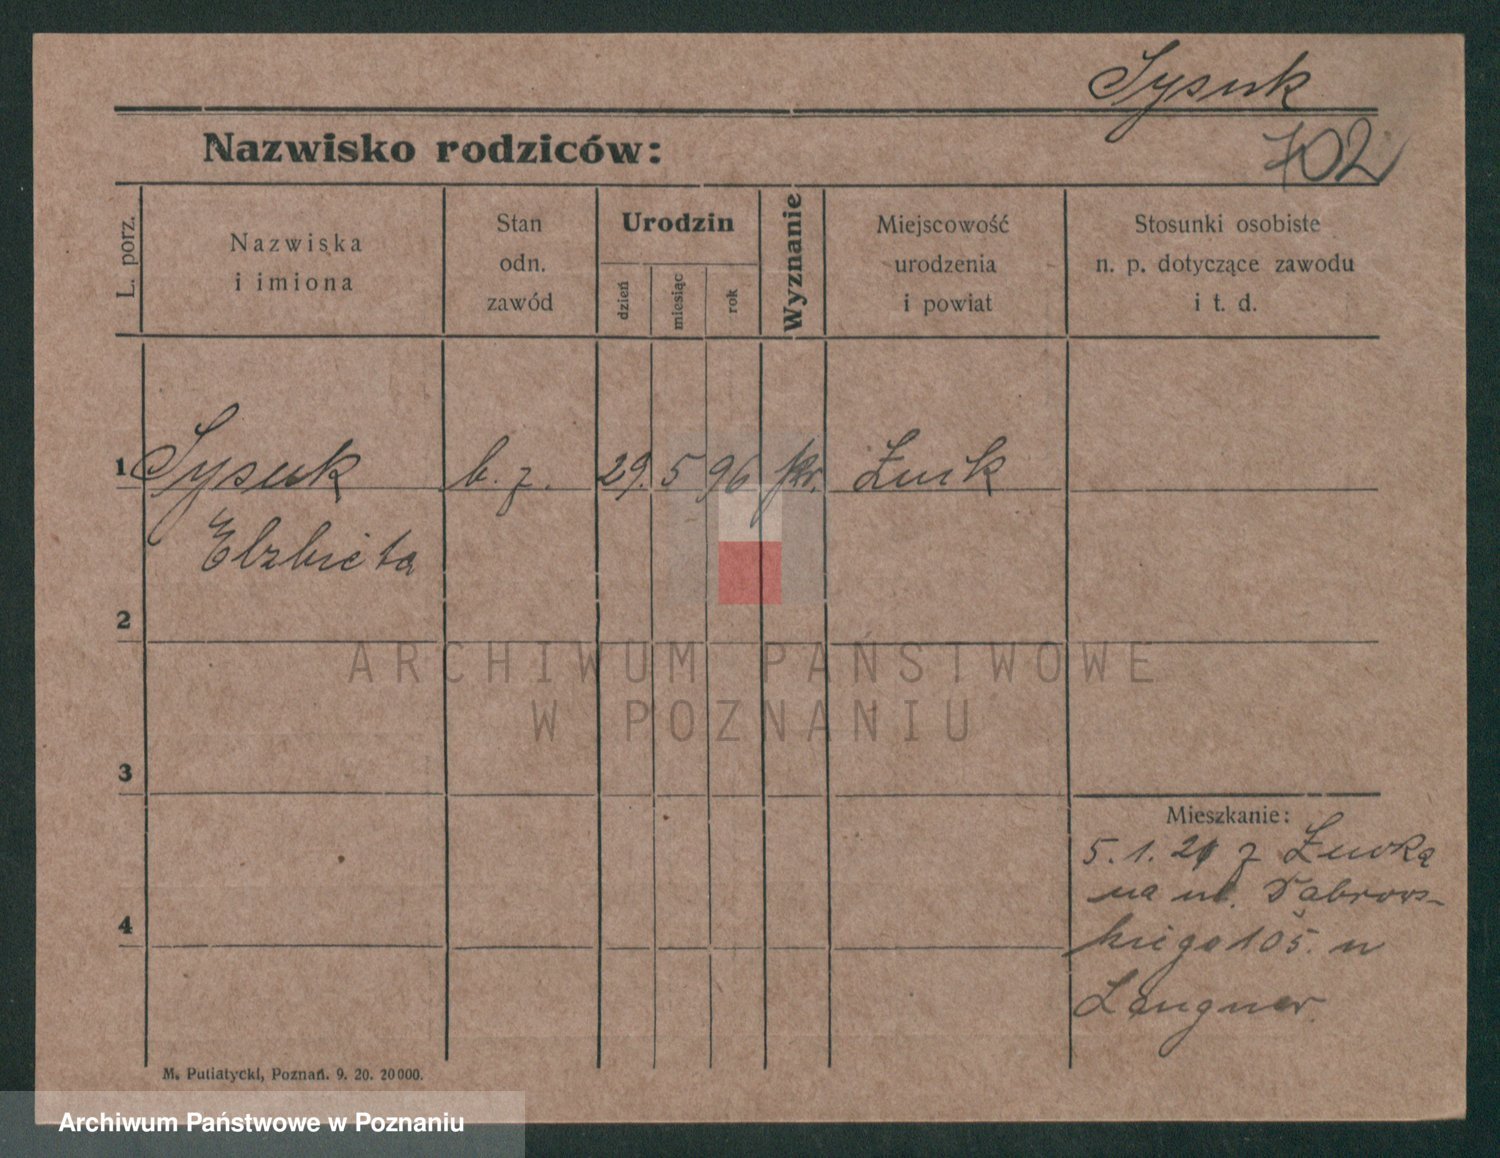 Sysuk
702
Nazwisko rodziców:
L. porz.
Nazwiska
i imiona
Stan
odn.
zawód
Urodzin
dzień
miesiąc
rok
Wyznanie
Miejscowość
urodzenia
i powiat
Stosunki osobiste
n. p. dotyczące zawodu
i t. d.
1 Sysuk b. z. 29. 5 96
Elzbieta
2
3
4
ARCHIWUM PAŃSTWOWE
W POZNANIU
Mieszkanie:
5. 1. 21 z
na ul. Dabrows-
kiego 105. u
Langner
M. Putiatycki, Poznań. 9. 20. 20000.
Archiwum Państwowe w Poznaniu